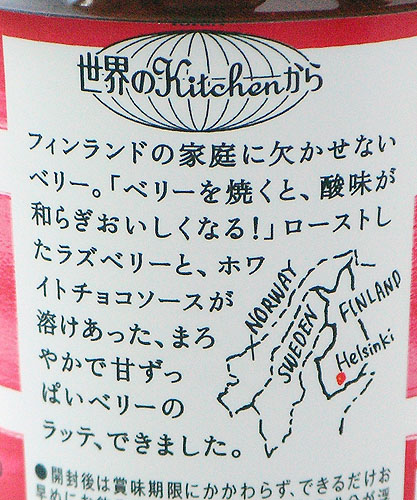 世界のKitchenから
フィンランドの家庭に欠かせない
ベリー。「ベリーを焼くと、酸味が
和らぎおいしくなる!」ローストし
たラズベリーと、ホワ
イトチョコソースが
溶けあった、まろ
やかで甘ずっ
ぱいベリーの
ラッテ、できました。
NORWAY
SWEDEN
FINLAND
Helsinki
●開封後は賞味期限にかかわらず、できるだけお